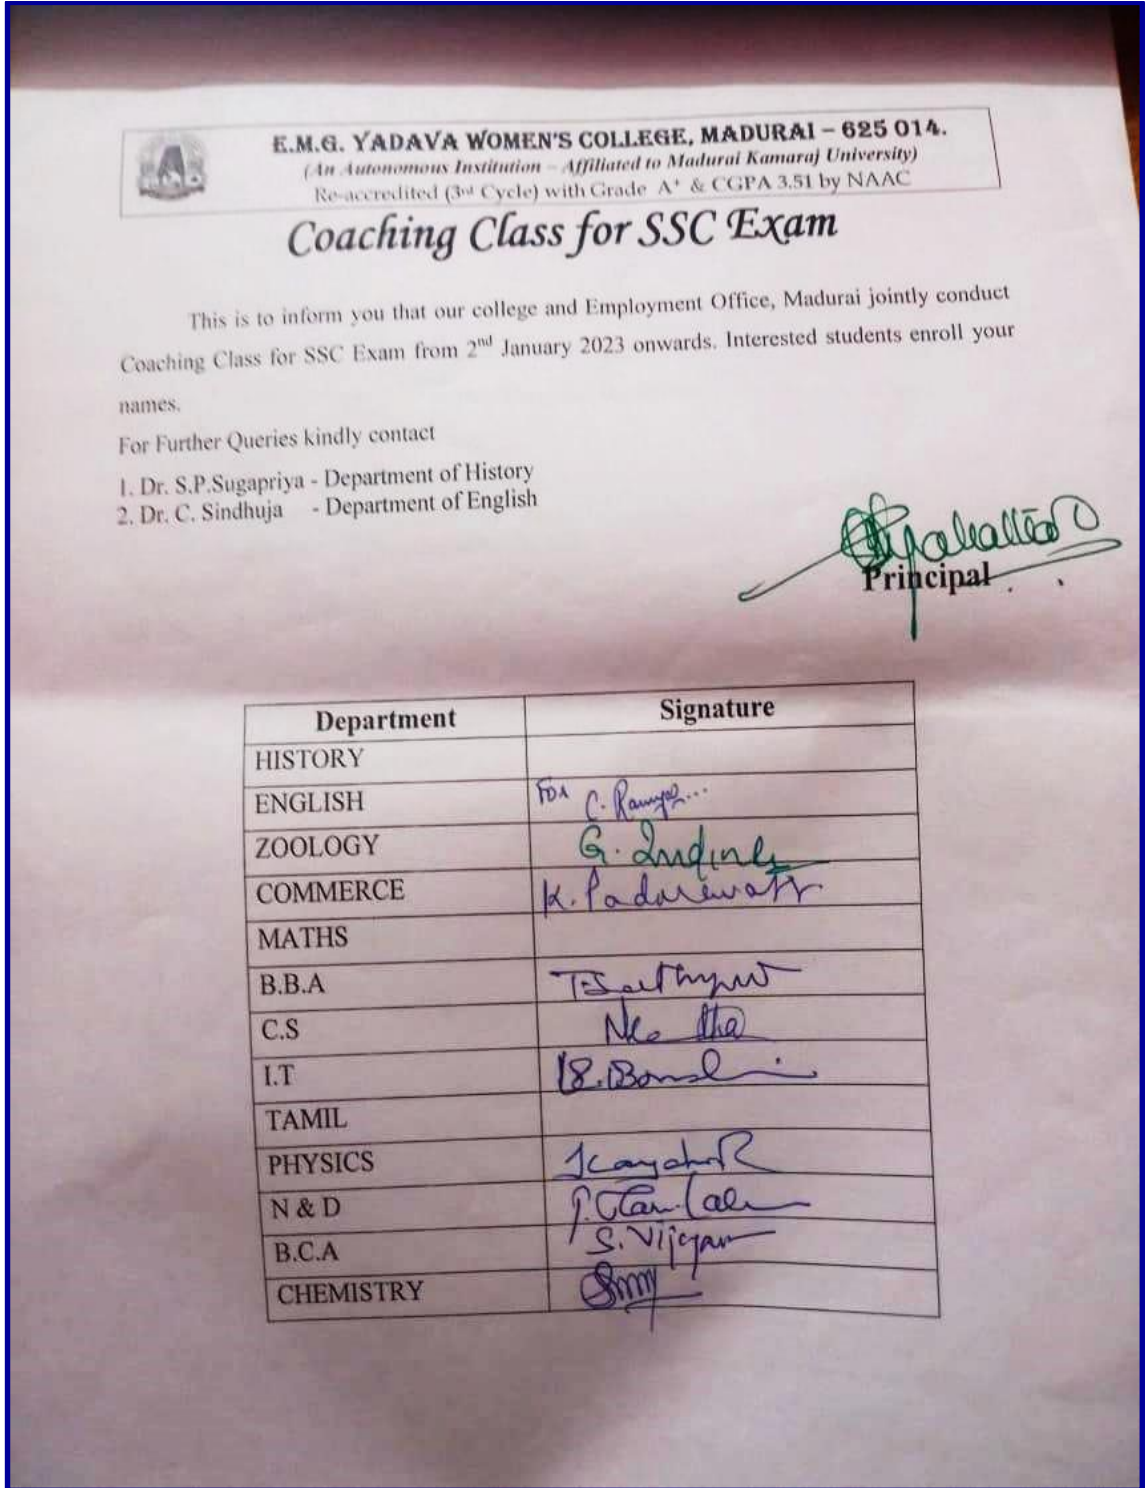 E.M.G. YADAVA WOMEN'S COLLEGE, MADURAI – 625 014.
(An Autonomous Institution – Affiliated to Madurai Kamaraj University)
Re-accredited (3rd Cycle) with Grade A+ & CGPA 3.51 by NAAC
Coaching Class for SSC Exam
This is to inform you that our college and Employment Office, Madurai jointly conduct
Coaching Class for SSC Exam from 2nd January 2023 onwards. Interested students enroll your
names.
For Further Queries kindly contact
1. Dr. S.P.Sugapriya - Department of History
2. Dr. C. Sindhuja - Department of English
Principal
Department Signature
HISTORY
ENGLISH For C.
ZOOLOGY G.
COMMERCE K.
MATHS
B.B.A
C.S
I.T
TAMIL
PHYSICS
N & D
B.C.A S.
CHEMISTRY